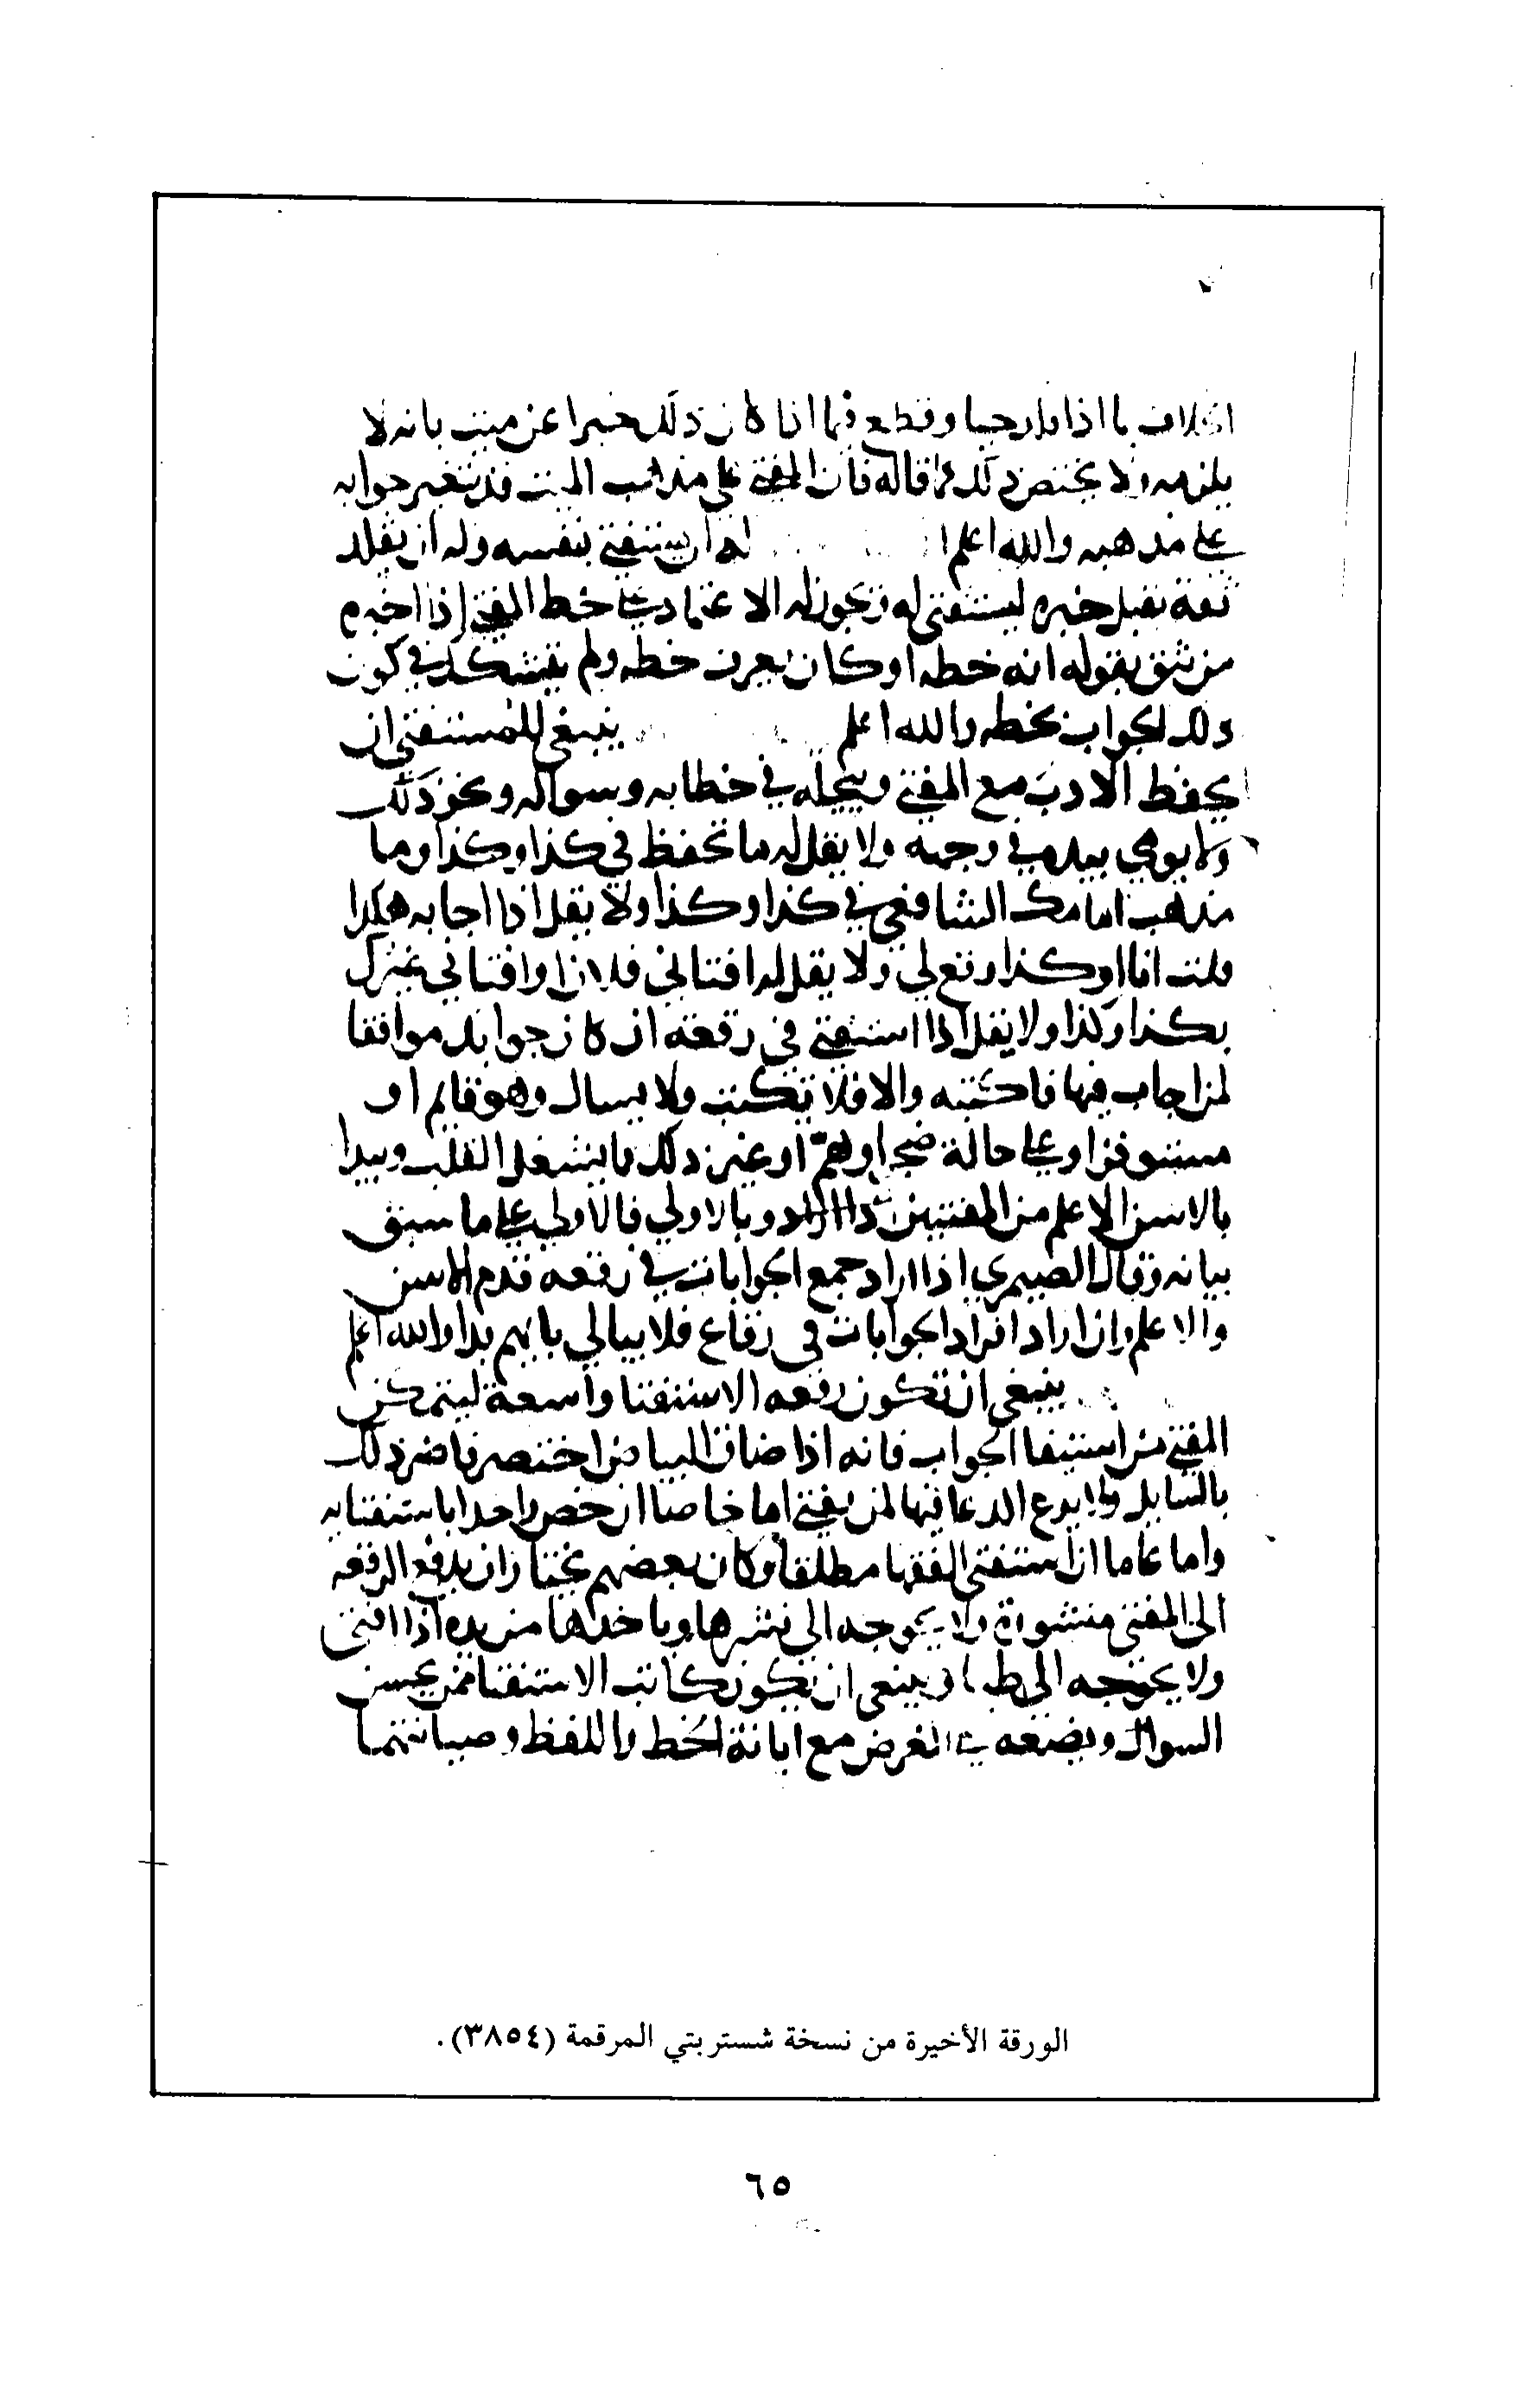 الخلاف بما اذا قلد حيا وقطع فيما اذا كان ذلك خبرا عن ميت بانه لا
يلزمه ولا يختص ذلك بما قاله فان المفتي على مذهب الميت قد يتغير جوابه
على مذهبه والله اعلم له ان يستفتي بنفسه وله ان يقلد
ثقة يقبل خبره ليستفتي له ويجوز له الاعتماد على خط المفتي اذا اخبره
من يثق بقوله انه خطه او كان يعرف خطه ولم يتشكك في كون
ذلك الجواب بخطه والله اعلم ينبغي للمستفتي ان
يحفظ الادب مع المفتي ويبجله في خطابه وسواله ونحو ذلك
ولا يومي بيده في وجهه ولا يقل له ما تحفظ في كذا وكذا وما
مذهب امامك الشافعي في كذا وكذا ولا يقل اذا اجابه هكذا
قلت انا او كذا وقع لي ولا يقل له افتاني فلان او افتاني غيرك
بكذا وكذا ولا يقل اذا استفتي في رقعة ان كان جوابك موافقا
لمن اجاب فيها فاكتبه والا فلا تكتب ولا يسال وهو قايم او
مستوفز او على حالة ضجر او هم او غير ذلك مما يشغل القلب ويبدا
بالاسن الاعلم من المفتيين وبالاولي فالاولي على ما سبق
بيانه وقال الصيمري اذا اراد جمع الجوابات في رقعه قدم الاسن
والاعلم وان اراد افراد الجوابات في رقاع فلا يبالي بايهم بدا والله اعلم
ينبغي ان تكون رقعه الاستفتا واسعة ليتمكن
المفتي من استيفا الجواب فانه اذا ضاق البياض اختصر فاضر ذلك
بالسايل ولا يدع الدعا فيها لمن يفتي اما خاصا ان خص واحدا باستفتايه
واما عاما ان استفتى الفقها مطلقا وكان بعضهم يختار ان يدفع الرقعه
الى المفتي منشورة ولا يحوجه الى نشرها وياخذها من يده اذا افتى
ولا يحوجه الى طيها وينبغي ان يكون كاتب الاستفتا ممن يحسن
السوال ويضعه على الغرض مع ابانة الخط واللفظ وصيانتهما
الورقة الأخيرة من نسخة شستربتي المرقمة (٣٨٥٤).
٦٥